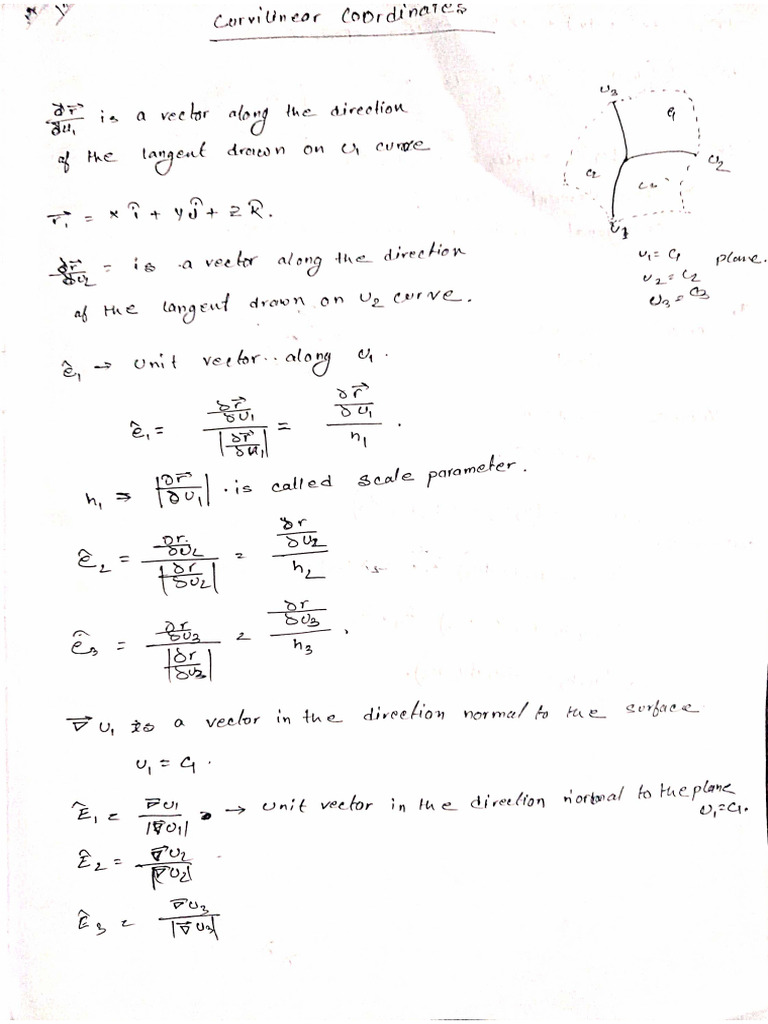 Curvilinear Coordinates
∂r⃗/∂u₁ is a vector along the direction
of the tangent drawn on u₁ curve
r⃗₁ = x î + y ĵ + z k̂.
∂r⃗/∂u₂ = is a vector along the direction
of the tangent drawn on u₂ curve.
u₃
C₁
u₂
C₂
u₁
u₁ = C₁ plane.
u₂ = C₂
u₃ = C₃
ê₁ → unit vector along u₁.
ê₁ = (∂r⃗/∂u₁) / |∂r⃗/∂u₁| = (∂r⃗/∂u₁) / h₁ .
h₁ ⇒ |∂r⃗/∂u₁| . is called scale parameter.
ê₂ = (∂r/∂u₂) / |∂r/∂u₂| = (∂r/∂u₂) / h₂
ê₃ = (∂r/∂u₃) / |∂r/∂u₃| = (∂r/∂u₃) / h₃ .
∇⃗u₁ is a vector in the direction normal to the surface
u₁ = C₁ .
Ê₁ = ∇⃗u₁ / |∇⃗u₁| → unit vector in the direction normal to the plane
u₁=C₁.
Ê₂ = ∇⃗u₂ / |∇⃗u₂|
Ê₃ = ∇⃗u₃ / |∇⃗u₃|